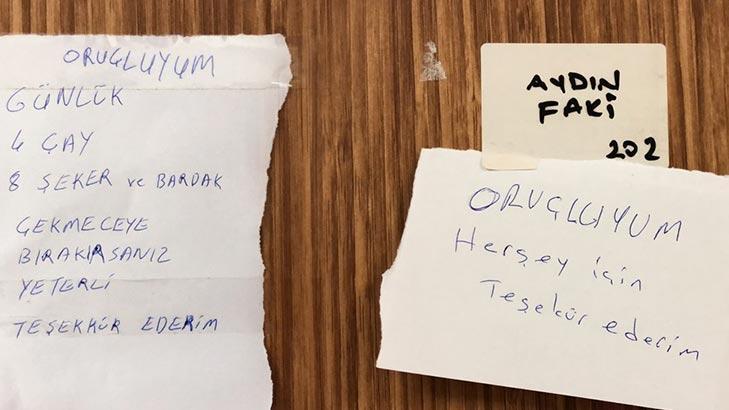 ORUÇLUYUM
GÜNLÜK
4 ÇAY
8 ŞEKER ve BARDAK
ÇEKMECEYE
BIRAKIRSANIZ
YETERLİ
TEŞEKKÜR EDERİM
AYDIN
FAKİ
202
ORUÇLUYUM
Herşey için
Teşekür ederim